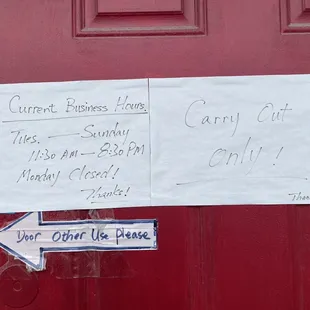 Current Business Hours.
Tues. — Sunday
11:30 AM — 8:30 PM
Monday Closed!
Thanks!
Carry Out
Only!
Door Other Use Please